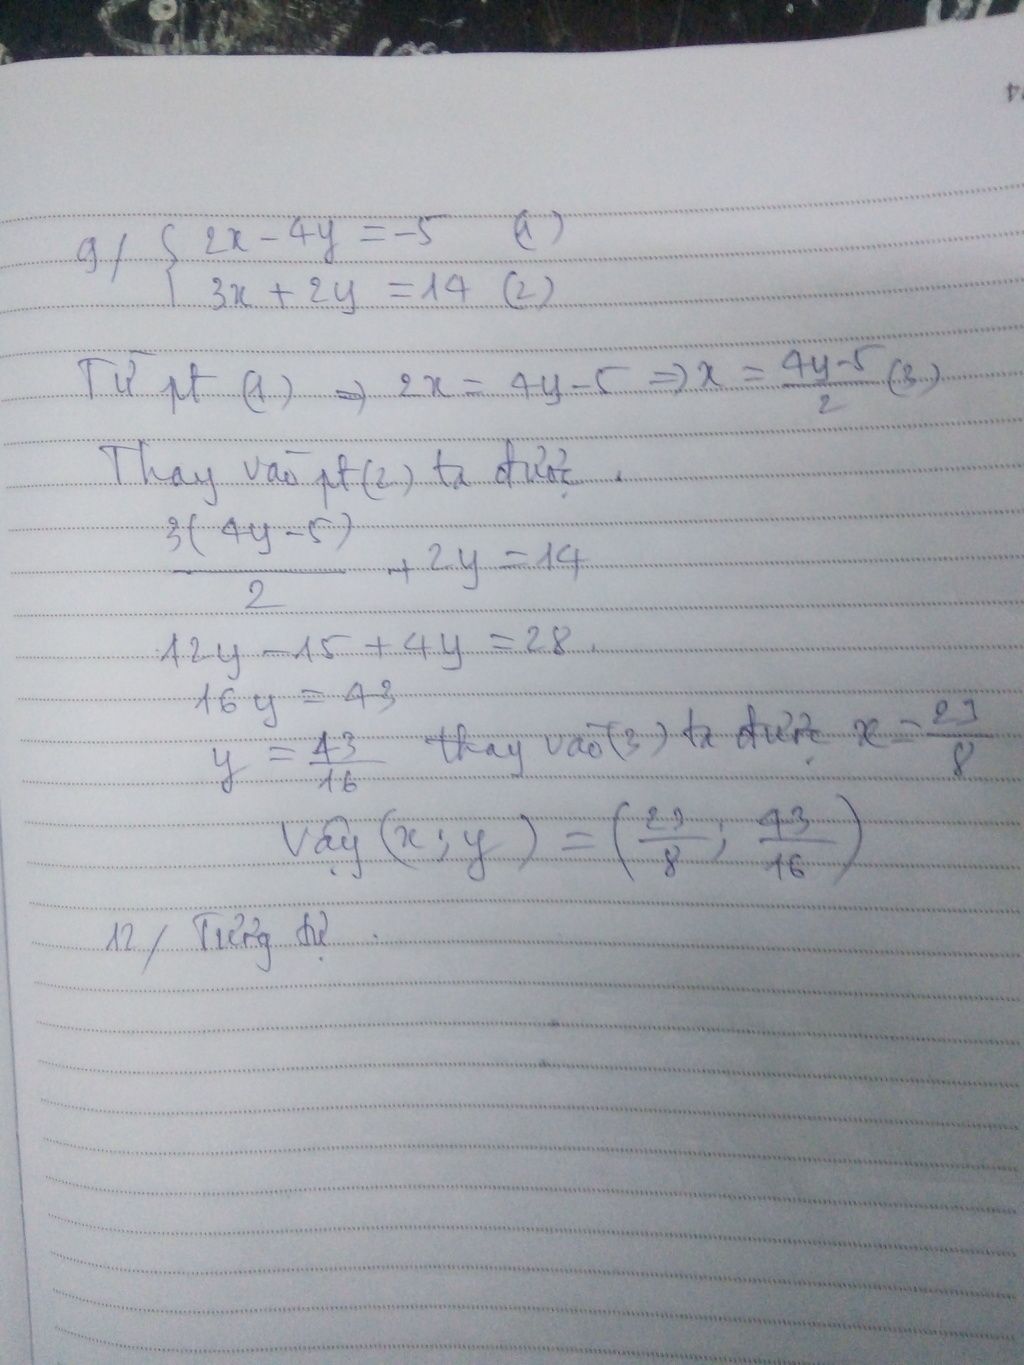 9/ { 2x - 4y = -5 (1)
3x + 2y = 14 (2)
Từ pt (1) => 2x = 4y - 5 => x = (4y-5)/2 (3)
Thay vào pt(2) ta được.
3(4y-5)/2 + 2y = 14
12y - 15 + 4y = 28.
16y = 43
y = 43/16 thay vào (3) ta được x = 23/8
Vậy (x; y) = (23/8; 43/16)
12/ Tương tự.